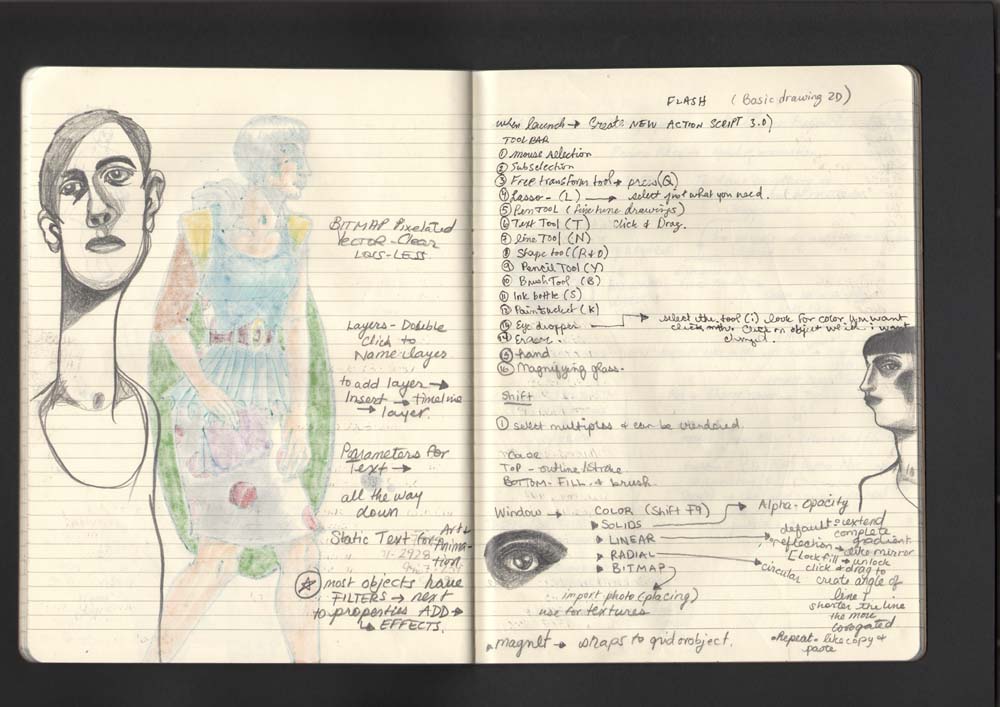 BITMAP Pixelated
VECTOR - Clear
LOSS-LESS
Layers - Double
Click to
Name layer
to add layer →
Insert → timeline
→ layer
Parameters for
Text →
all the way
down
Static Text for Art & Animation
most objects have
FILTERS → next
to properties ADD →
↳ EFFECTS.
FLASH (Basic drawing 2D)
when launch → Create NEW ACTION SCRIPT 3.0)
TOOL BAR
① mouse selection
② Subselection
③ Free transform tool → press (Q)
④ Lasso - (L) → select just what you need.
⑤ Pen TOOL (fine tune drawings)
⑥ Text Tool (T) Click & Drag.
⑦ line TOOL (N)
⑧ Shape tool (R & O)
⑨ Pencil Tool (Y)
⑩ Brush Tool (B)
⑪ Ink bottle (S)
⑫ Paintbucket (K)
⑬ Eye dropper → select the tool (i) look for color you want
click on object which i want
⑭ Eraser. changed.
⑮ hand
⑯ Magnifying glass.
Shift
① select multiples & can be
Color
TOP - outline/stroke
BOTTOM - FILL & brush
Window → COLOR (Shift F9)
▸ SOLIDS → Alpha - Opacity
▸ LINEAR → default = extend
complete
reflection → gradient
like mirror
▸ RADIAL → circular
[lock fill → unlock
click & drag to
create angle of
line &
shorter the line
the more
▸ BITMAP
import photo (placing)
use for textures
• Repeat - like copy &
paste
• magnet → snaps to grid or object.